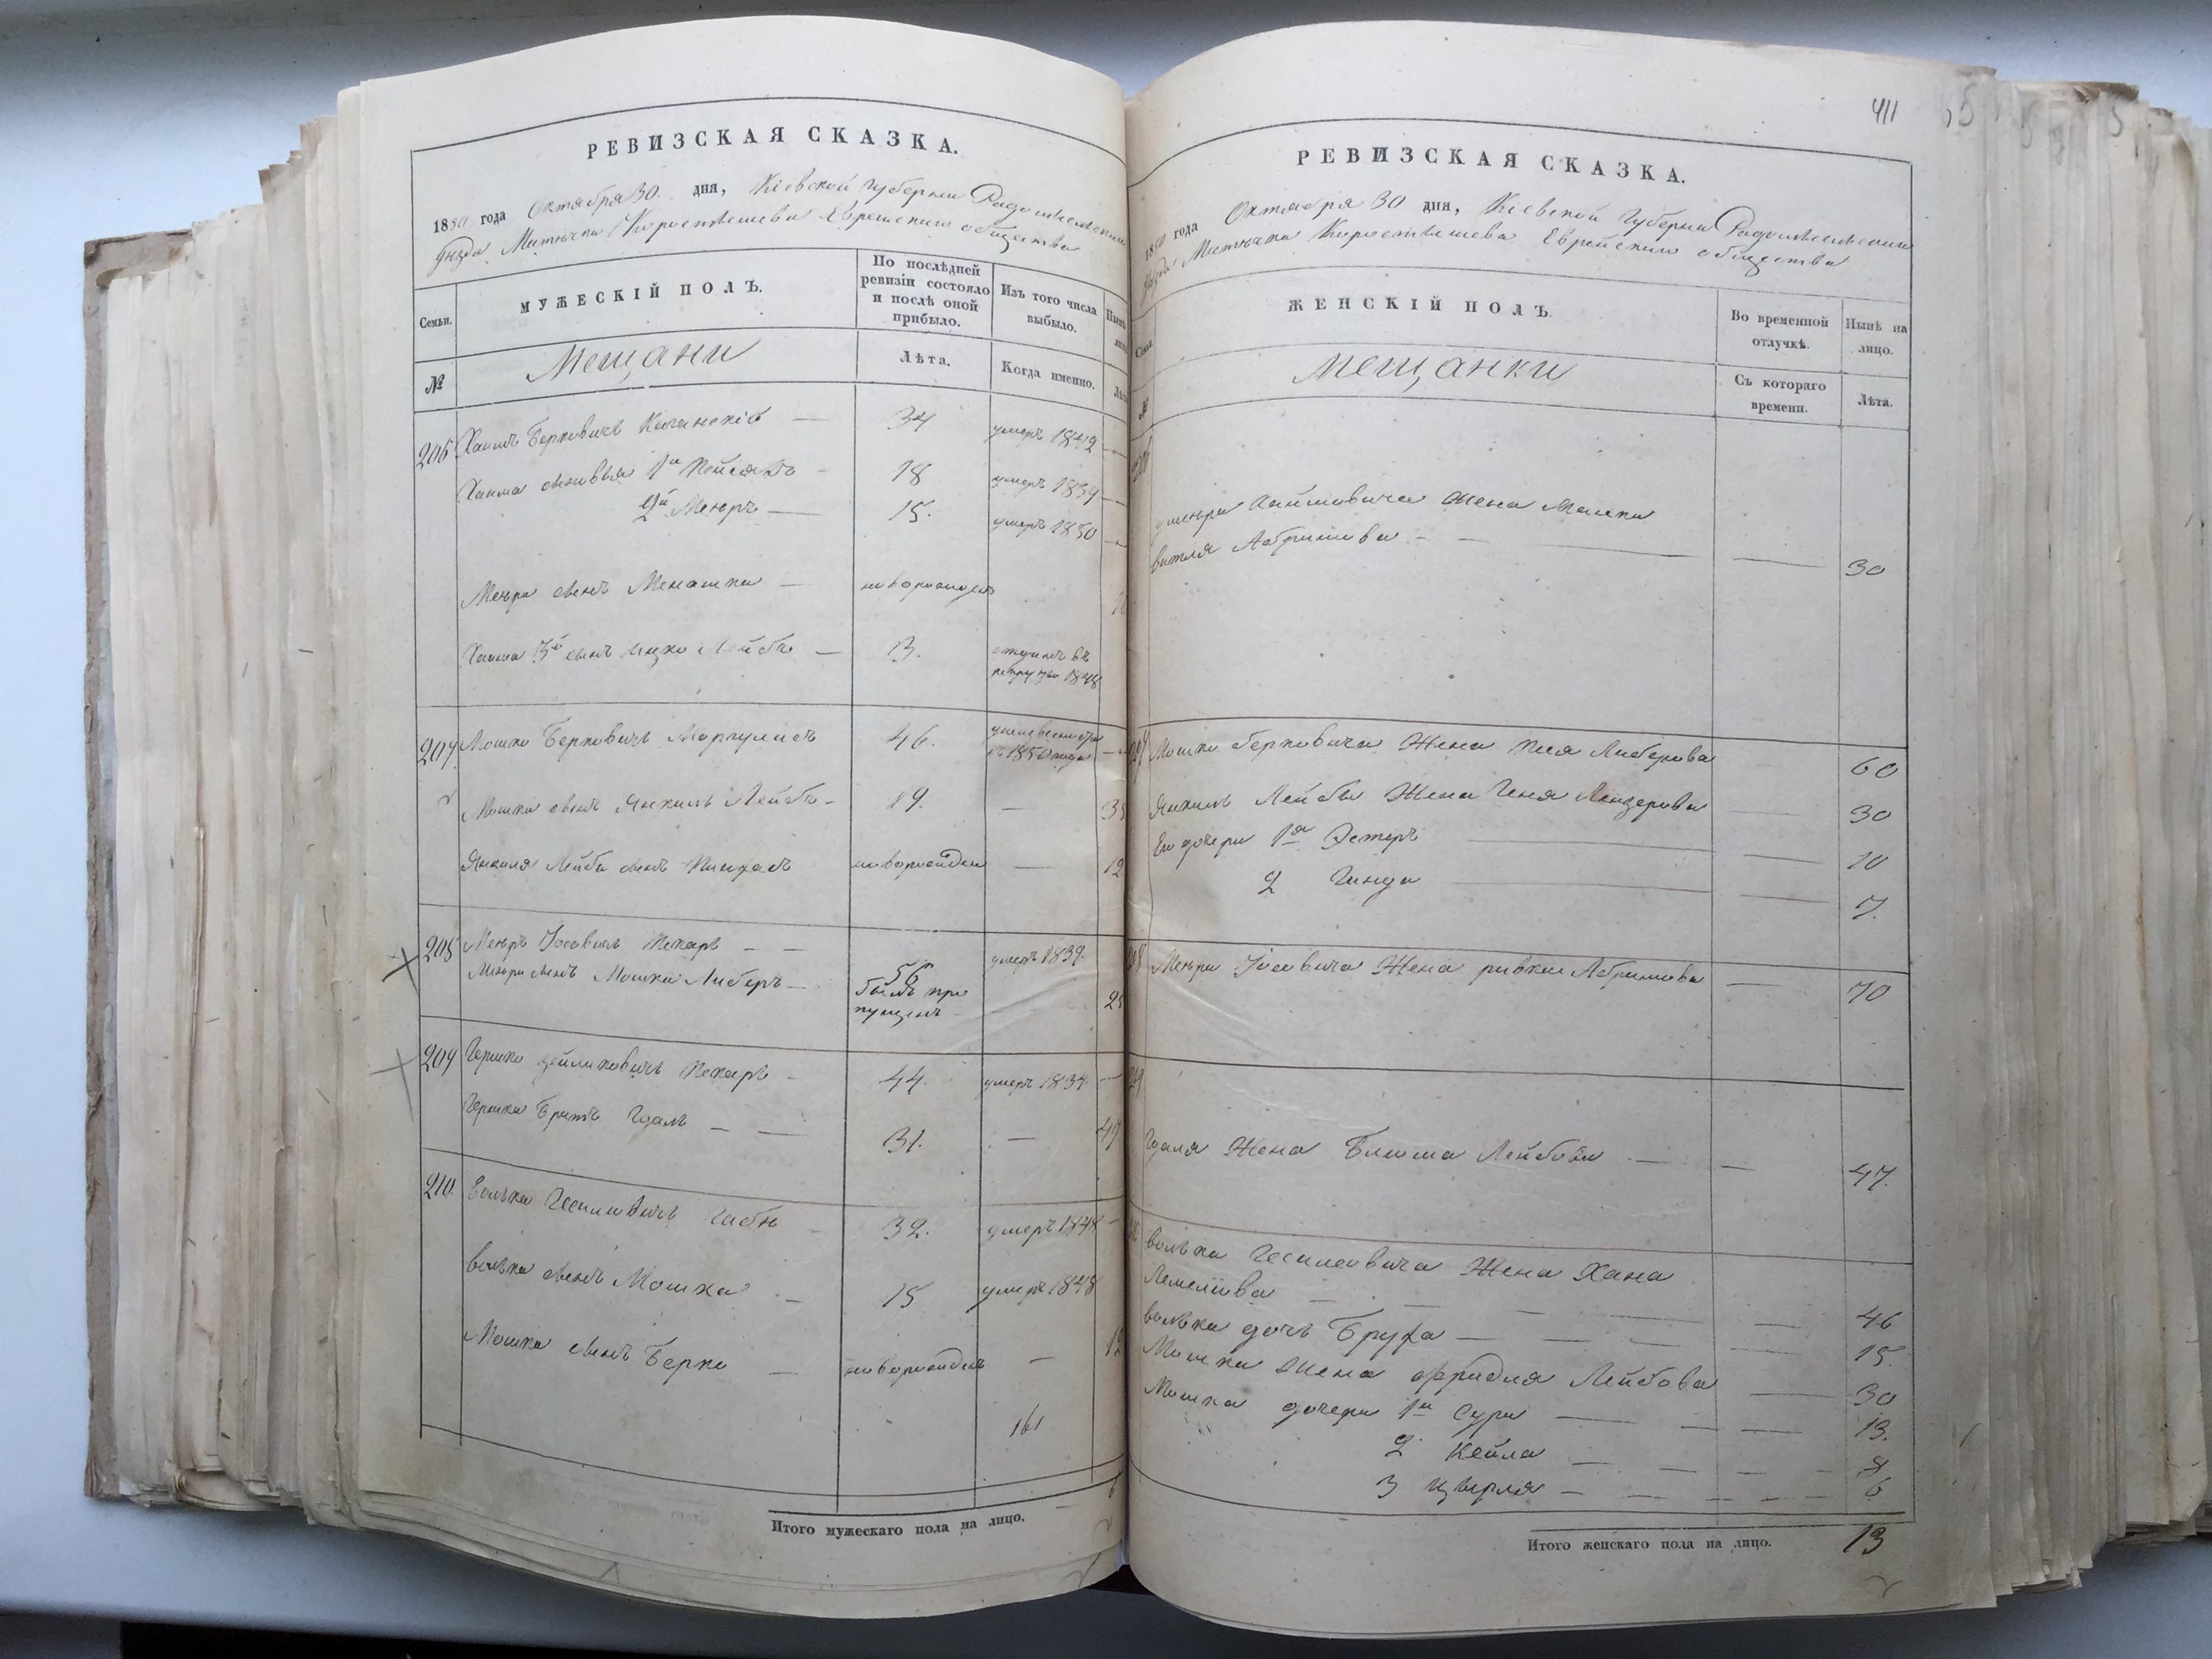 РЕВИЗСКАЯ СКАЗКА.
1850 года Октября 30. дня, Кіевской Губерніи Радомысльскаго
уѣзда Мѣстечка Коростышева Еврейскаго общества
Семьи.
МУЖЕСКІЙ ПОЛЪ.
По послѣдней ревизіи состояло и послѣ оной прибыло.
Изъ того числа выбыло.
№
Мещани
Лѣта.
Когда именно.
206 Хаимъ Берковичъ — 34 умеръ 1842 —
Хаима сыновья 1й Пейсахъ — 18 умеръ 1839 —
2й Меиръ — 15. умеръ 1850 —
Меира сынъ Менашка — новорожденъ
Хаима 3й сынъ Ицко Лейбъ — 13. отданъ въ рекруты 1848
207 Мошко Берковичъ Маргулисъ 46. 1850 года —
Мошка сынъ Янкиль Лейбъ — 19. —
Янкиля Лейбы сынъ Пинхасъ новорожден — 12
208 Меиръ Іосевичъ Пекаръ — — 56 умеръ 1839.
Меира сынъ Мошка Либеръ — былъ пропущенъ
209 Гершко Зейликовичъ Пекаръ — 44. умеръ 1834 —
Гершка братъ Гдаль — — 31. — 47
210. Волька 32. умеръ 1848 —
Волька сынъ Мошка — 15 умеръ 1848
Мошка сынъ Берко — новорожденъ — 12
161
6
Итого мужескаго пола на лицо.
411
РЕВИЗСКАЯ СКАЗКА.
1850 года Октября 30 дня, Кіевской Губерніи Радомысльскаго
уѣзда Мѣстечка Коростышева Еврейскаго общества
ЖЕНСКІЙ ПОЛЪ.
Во временной отлучкѣ.
Нынѣ на лицо.
№
Мещанки
Съ котораго времени.
Лѣта.
Меира Хаимовича Жена Малка
Абрамова — — — 30
207 Мошка Берковича Жена Либерова 60
Янкиль Лейбы Жена Геня Лейзерова — 30
Его дочери 1я Эстеръ — — 10
2 Гинда — — 7.
208 Меира Іосевича Жена Ривка Абрамова — 70
209
Гдаля Жена Блюма Лейбова — — 47.
210 Волька Жена Хана
— — — 46
Волька дочь Бруха — — — 15.
Мошка Жена Фридля Лейбова — 30
Мошка дочери 1я Сура — — — 13.
2 Кейла — — — 8
3 Цывля — — — 6
Итого женскаго пола на лицо. 13